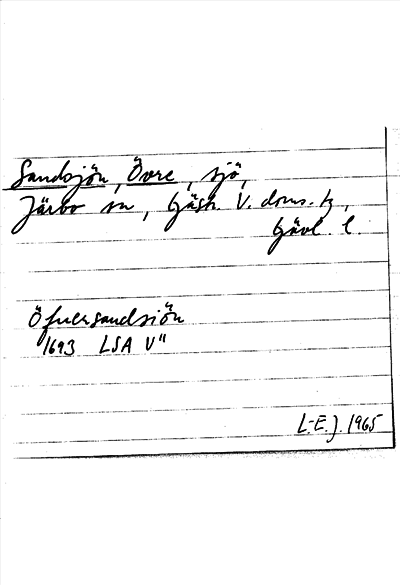 Sandsjön, Övre, sjö,
Järbo sn, Gästr. V. doms. tg,
Gävl. l
Öfversandsiön
1693 LSA V"
L-E. J. 1965